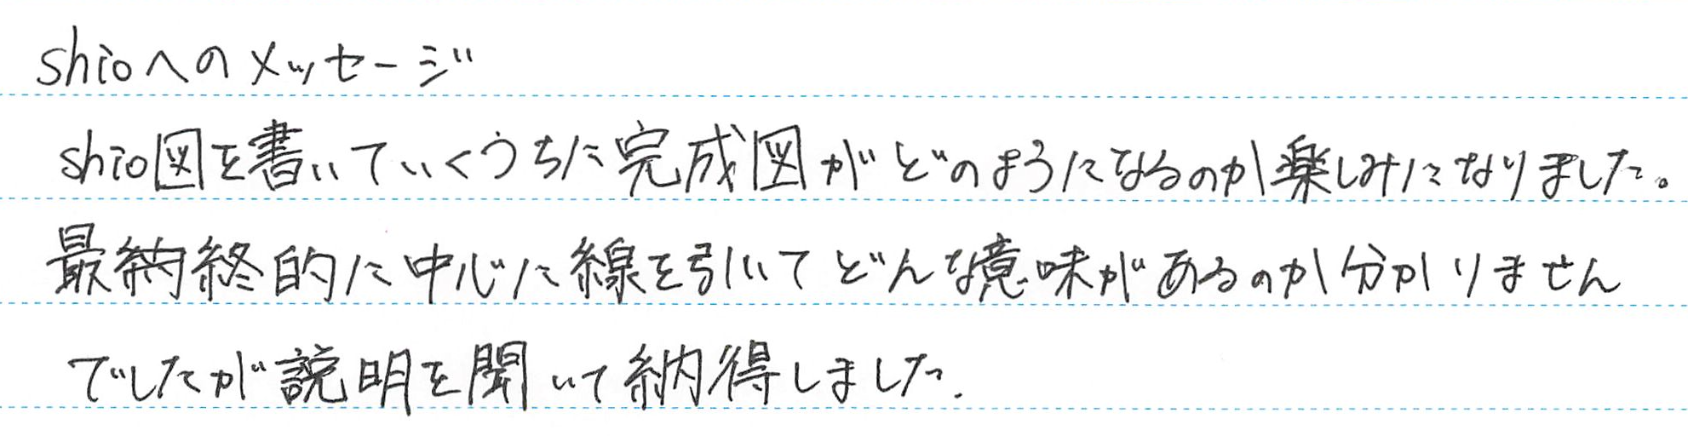 shioへのメッセージ
shio図を書いていくうちに完成図がどのようになるのか楽しみになりました。
最納終的に中心に線を引いてどんな意味があるのか分かりません
でしたが説明を聞いて納得しました.